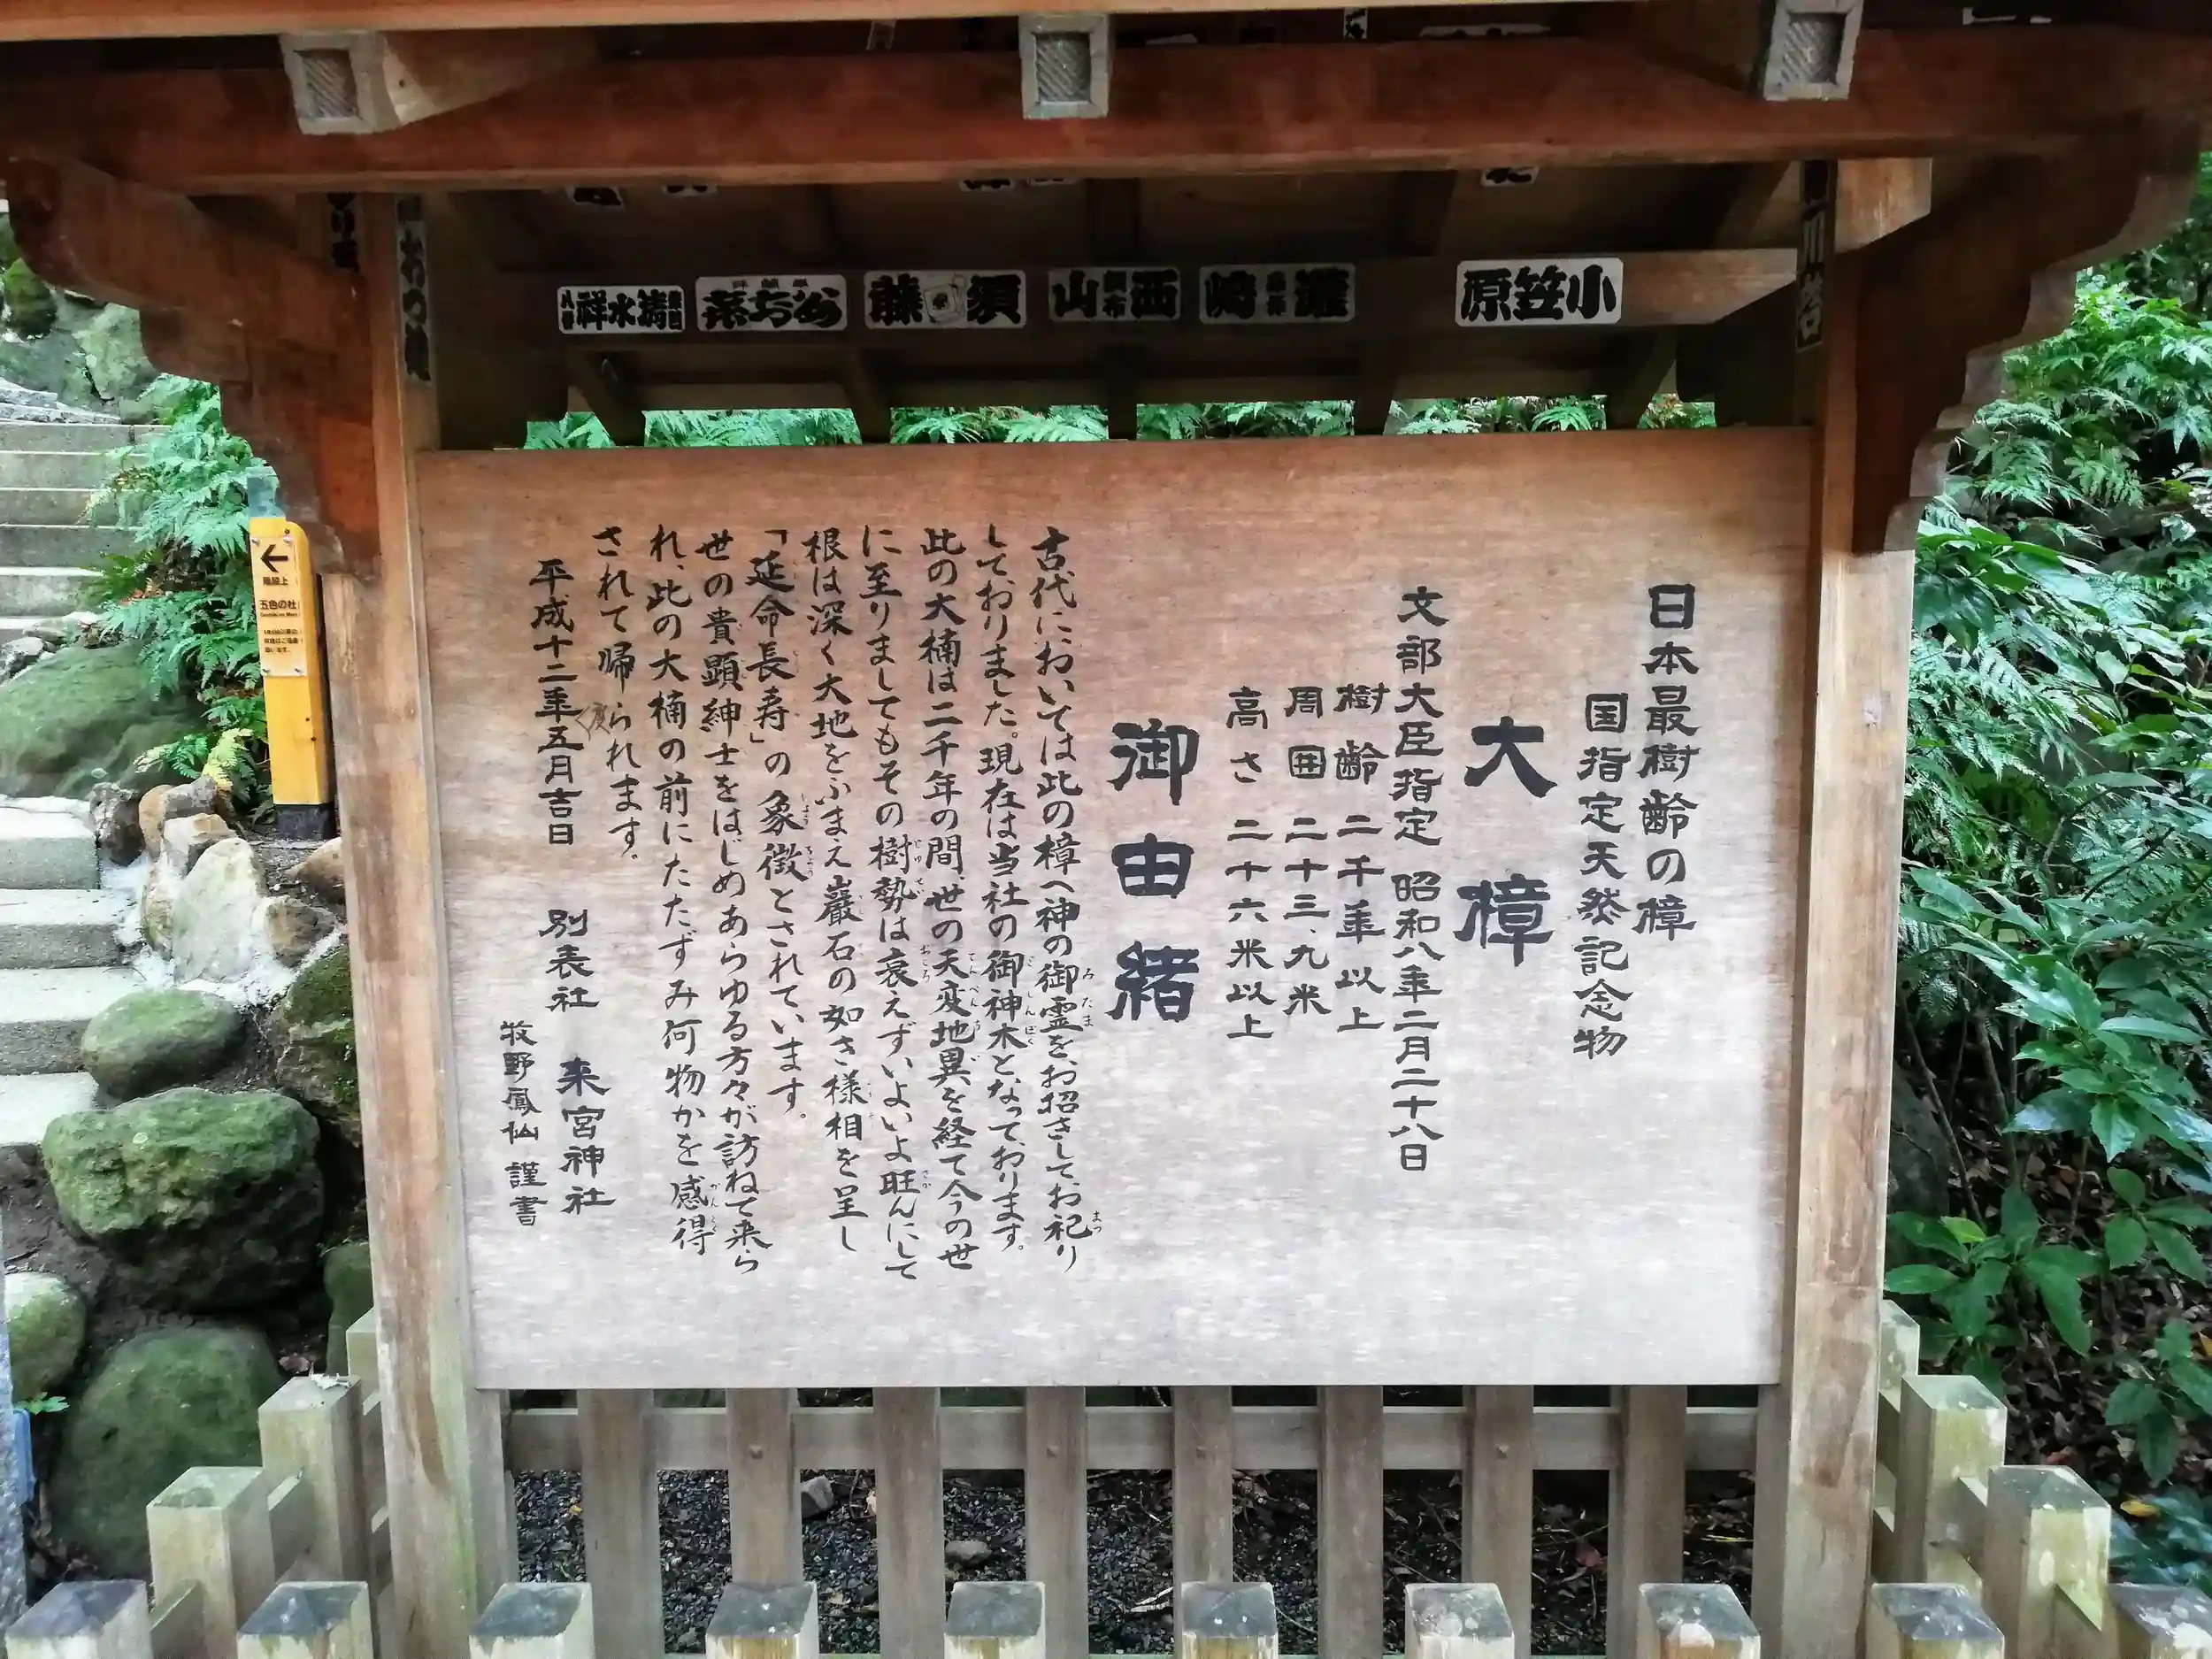 小笠原
西山
須藤
清水祥
日本最樹齢の樟
国指定天然記念物
大樟
文部大臣指定 昭和八年二月二十八日
樹齢 二千年以上
周囲 二十三、九米
高さ 二十六米以上
御由緒
古代においては此の樟へ神の御霊を、お招きしてお祀り
しておりました。現在は当社の御神木となっております。
此の大楠は二千年の間、世の天変地異を経て今の世
に至りましてもその樹勢は衰えず、いよいよ旺んにして
根は深く大地をふまえ巖石の如き様相を呈し
「延命長寿」の象徴とされています。
世の貴顕紳士をはじめあらゆる方々が訪ねて来ら
れ、此の大楠の前にたたずみ何物かを感得
されて帰られます。
平成十二年五月吉日 別表社 来宮神社
牧野鳳仙 謹書
階段上
五色の杜